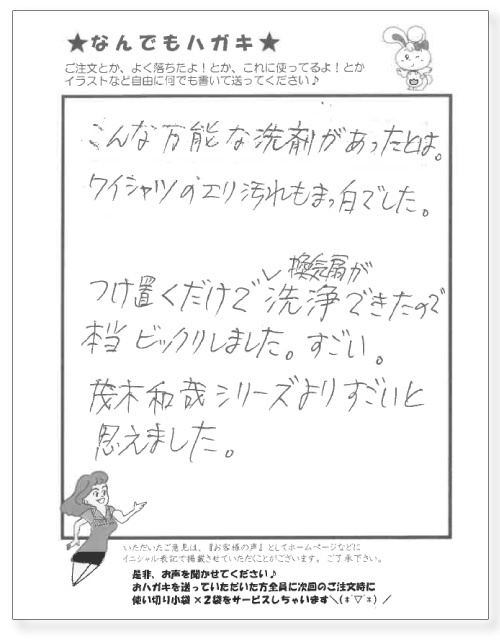 ★なんでもハガキ★
ご注文とか、よく落ちたよ！とか、これに使ってるよ！とか
イラストなど自由に何でも書いて送ってください♪
こんな万能な洗剤があったとは。
ワイシャツのエリ汚れもまっ白でした。
換気扇が
つけ置くだけで✓洗浄できたので
本当ビックリしました。すごい。
茂木和哉シリーズよりすごいと
思えました。
いただいたご意見は、『お客様の声』としてホームページなどに
イニシャル表記で掲載させていただくことがございます。ご了承下さい。
是非、お声を聞かせてください♪
おハガキを送っていただいた方全員に次回のご注文時に
使い切り小袋×2袋をサービスしちゃいます＼(*ˊ▽ˋ*)／